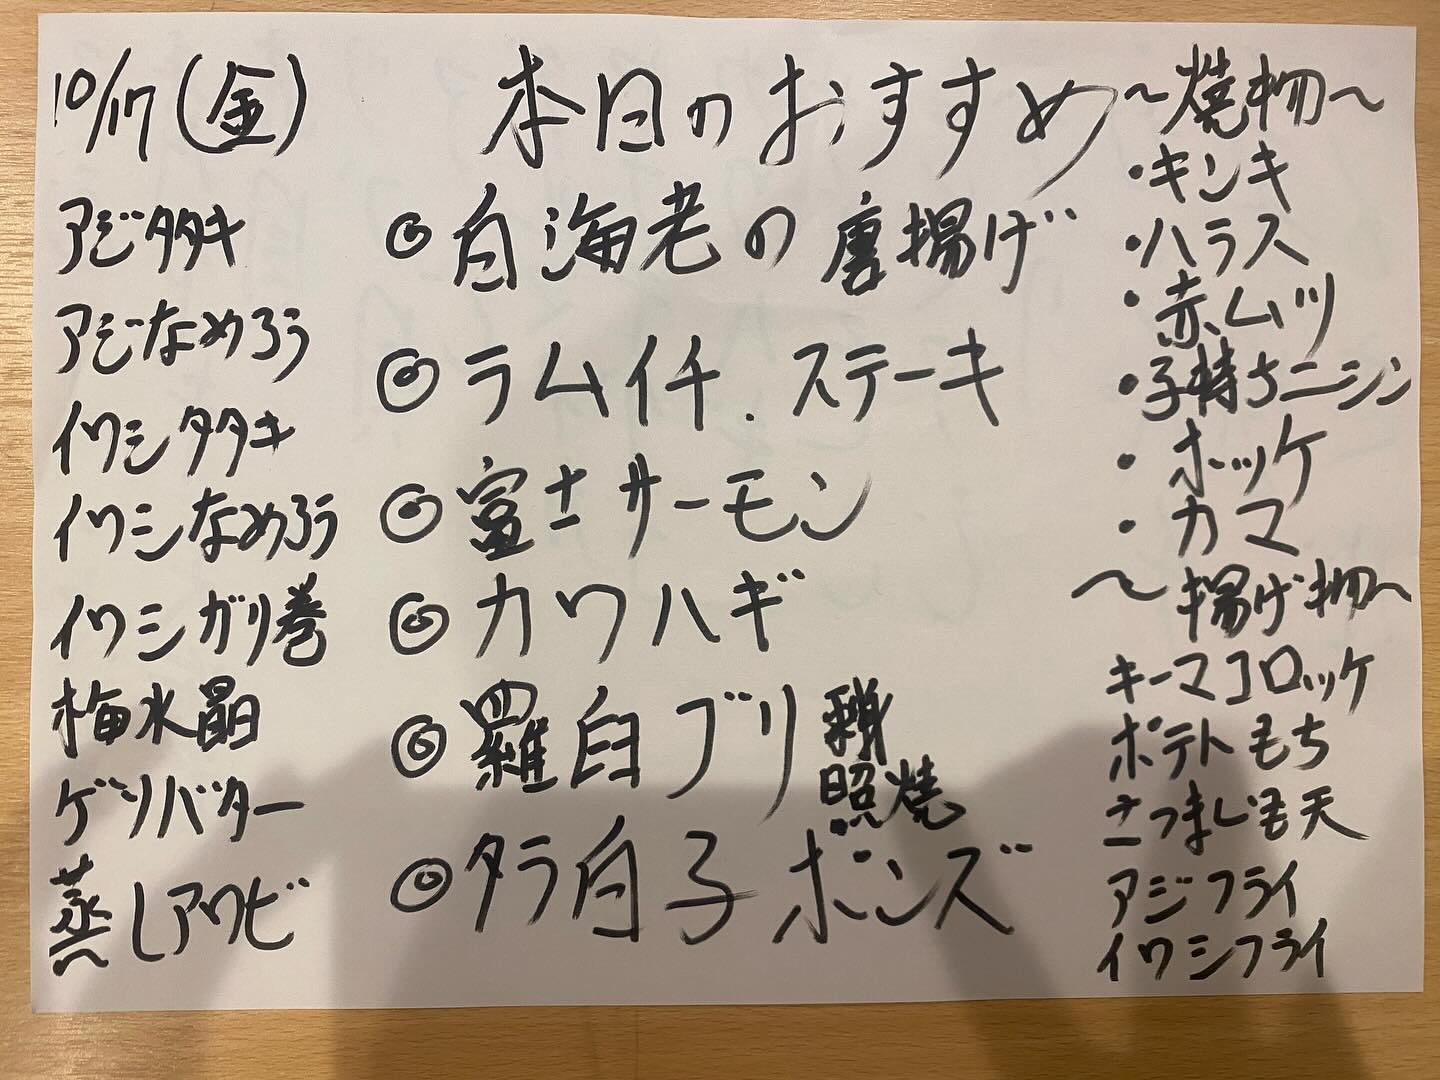 10/17(金)
アジタタキ
アジなめろう
イワシタタキ
イワシなめろう
イワシガリ巻
梅水晶
ゲソバター
蒸しアワビ
本日のおすすめ
◎白海老の唐揚げ
◎ラムイチ.ステーキ
◎富士サーモン
◎カワハギ
◎羅臼ブリ
照焼
◎タラ白子ポンズ
~焼物~
・キンキ
・ハラス
・赤ムツ
・子持ちニシン
・ホッケ
・カマ
~揚げ物~
キーマコロッケ
ポテトもち
さつまじも天
アジフライ
イワシフライ